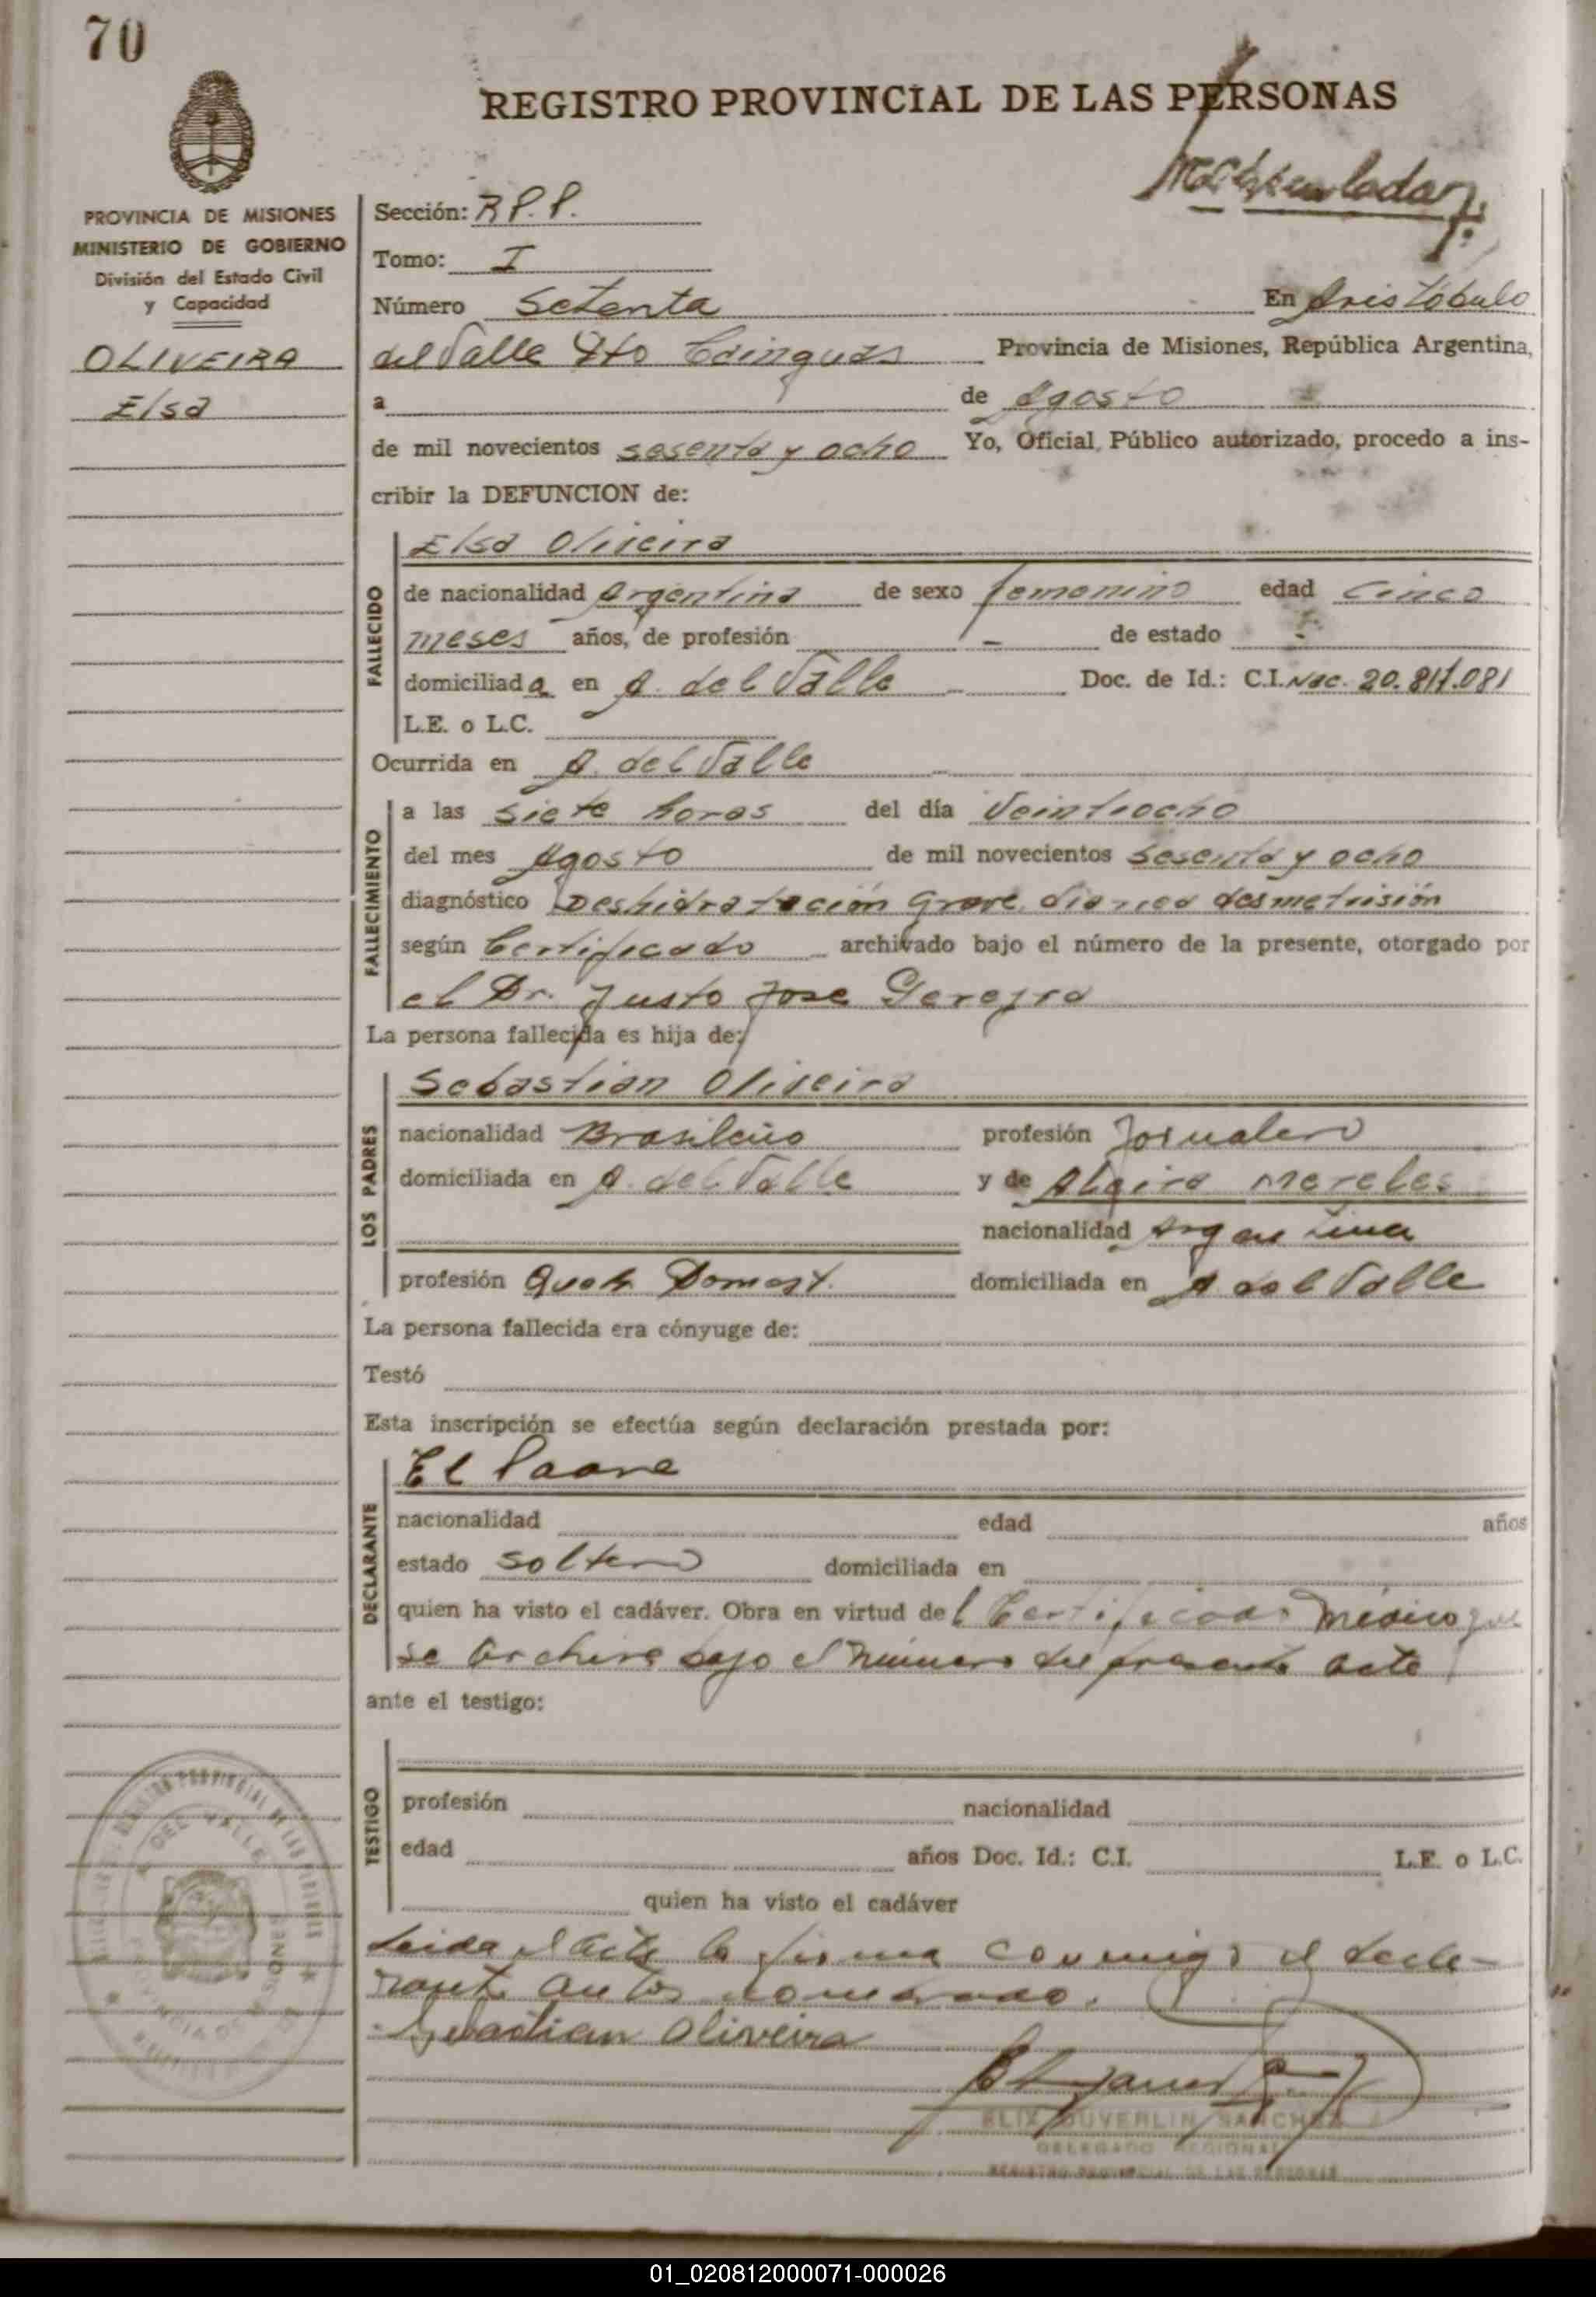 70
REGISTRO PROVINCIAL DE LAS PERSONAS
PROVINCIA DE MISIONES
MINISTERIO DE GOBIERNO
División del Estado Civil
y Capacidad
OLIVEIRA
Elsa
Sección: R P. P.
Tomo: I
Número Setenta En Aristóbulo
del Valle Dto Cainguas Provincia de Misiones, República Argentina,
a de Agosto
de mil novecientos sesenta y ocho Yo, Oficial Público autorizado, procedo a ins-
cribir la DEFUNCION de:
FALLECIDO
Elsa Oliveira
de nacionalidad Argentina de sexo femenino edad Cinco
meses años, de profesión - de estado
domiciliada en A. del Valle Doc. de Id.: C.I. Nac. 20.811.081
L.E. o L.C.
Ocurrida en A. del Valle
FALLECIMIENTO
a las siete horas del día Veintiocho
del mes Agosto de mil novecientos Sesenta y ocho
diagnóstico Deshidratación Grave
según Certificado archivado bajo el número de la presente, otorgado por
el Dr. Justo Jose
La persona fallecida es hija de:
LOS PADRES
Sebastian Oliveira
nacionalidad Brasileño profesión Jornalero
domiciliada en A. del Valle y de Mereles
nacionalidad Argentina
profesión Queh Domest. domiciliada en A del Valle
La persona fallecida era cónyuge de:
Testó
Esta inscripción se efectúa según declaración prestada por:
DECLARANTE
El Padre
nacionalidad edad años
estado soltero domiciliada en
quien ha visto el cadáver. Obra en virtud del Certificado médico que
se archiva bajo el número del presente acta
ante el testigo:
TESTIGO
profesión nacionalidad
edad años Doc. Id.: C.I. L.E. o L.C.
quien ha visto el cadáver
Leida el acta la firma conmigo el decla-
rante antes nombrado.
Sebastian Oliveira
ELIX DUVERLIN SANCHEZ
DELEGADO REGIONAL
REGISTRO PROVINCIAL DE LAS PERSONAS
01_020812000071-000026